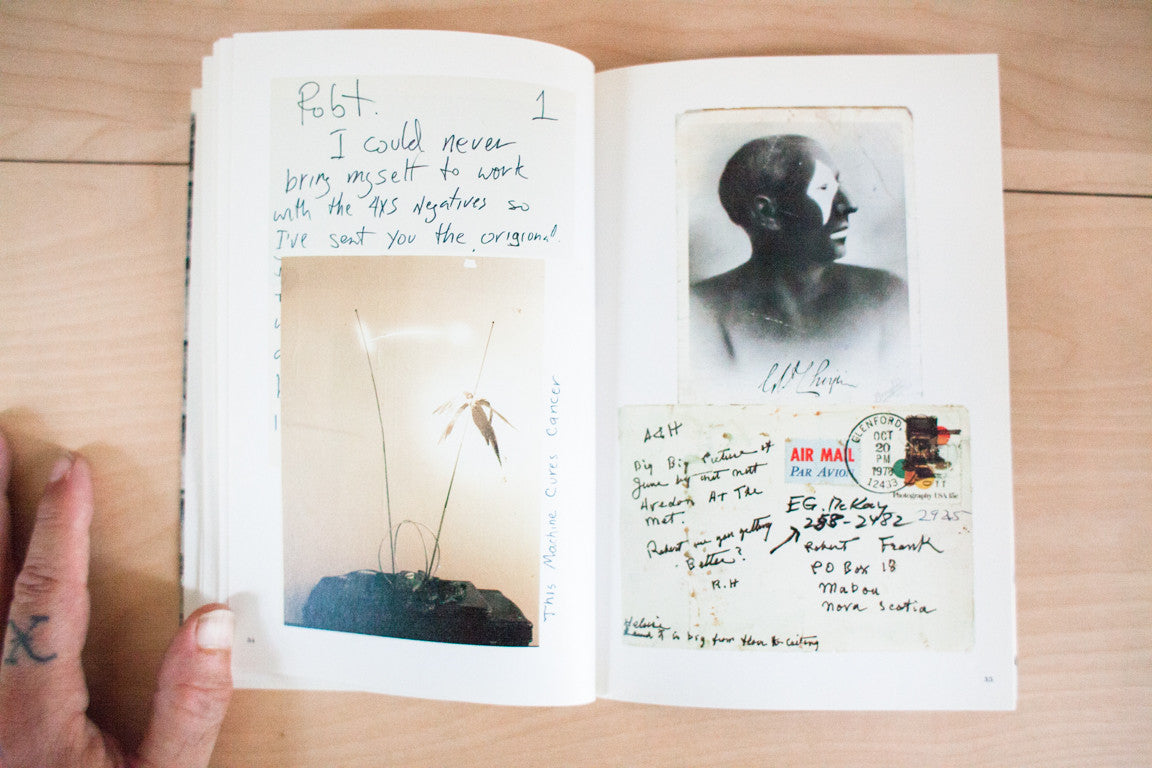 Robt. 1
I could never
bring myself to work
with the 4X5 Negatives so
I've sent you the origional.
This Machine Cures Cancer
34
Big Big Picture of
June by
Avedon At The
Met.
Robert are you getting
Better?
R.H
big from floor to ceiling
AIR MAIL
PAR AVION
GLENFORD,
OCT
20
PM
1978
12433
Photography USA 15c
EG. McKay
258-2482 2925
Robert Frank
PO Box 18
Mabou
Nova Scotia
35